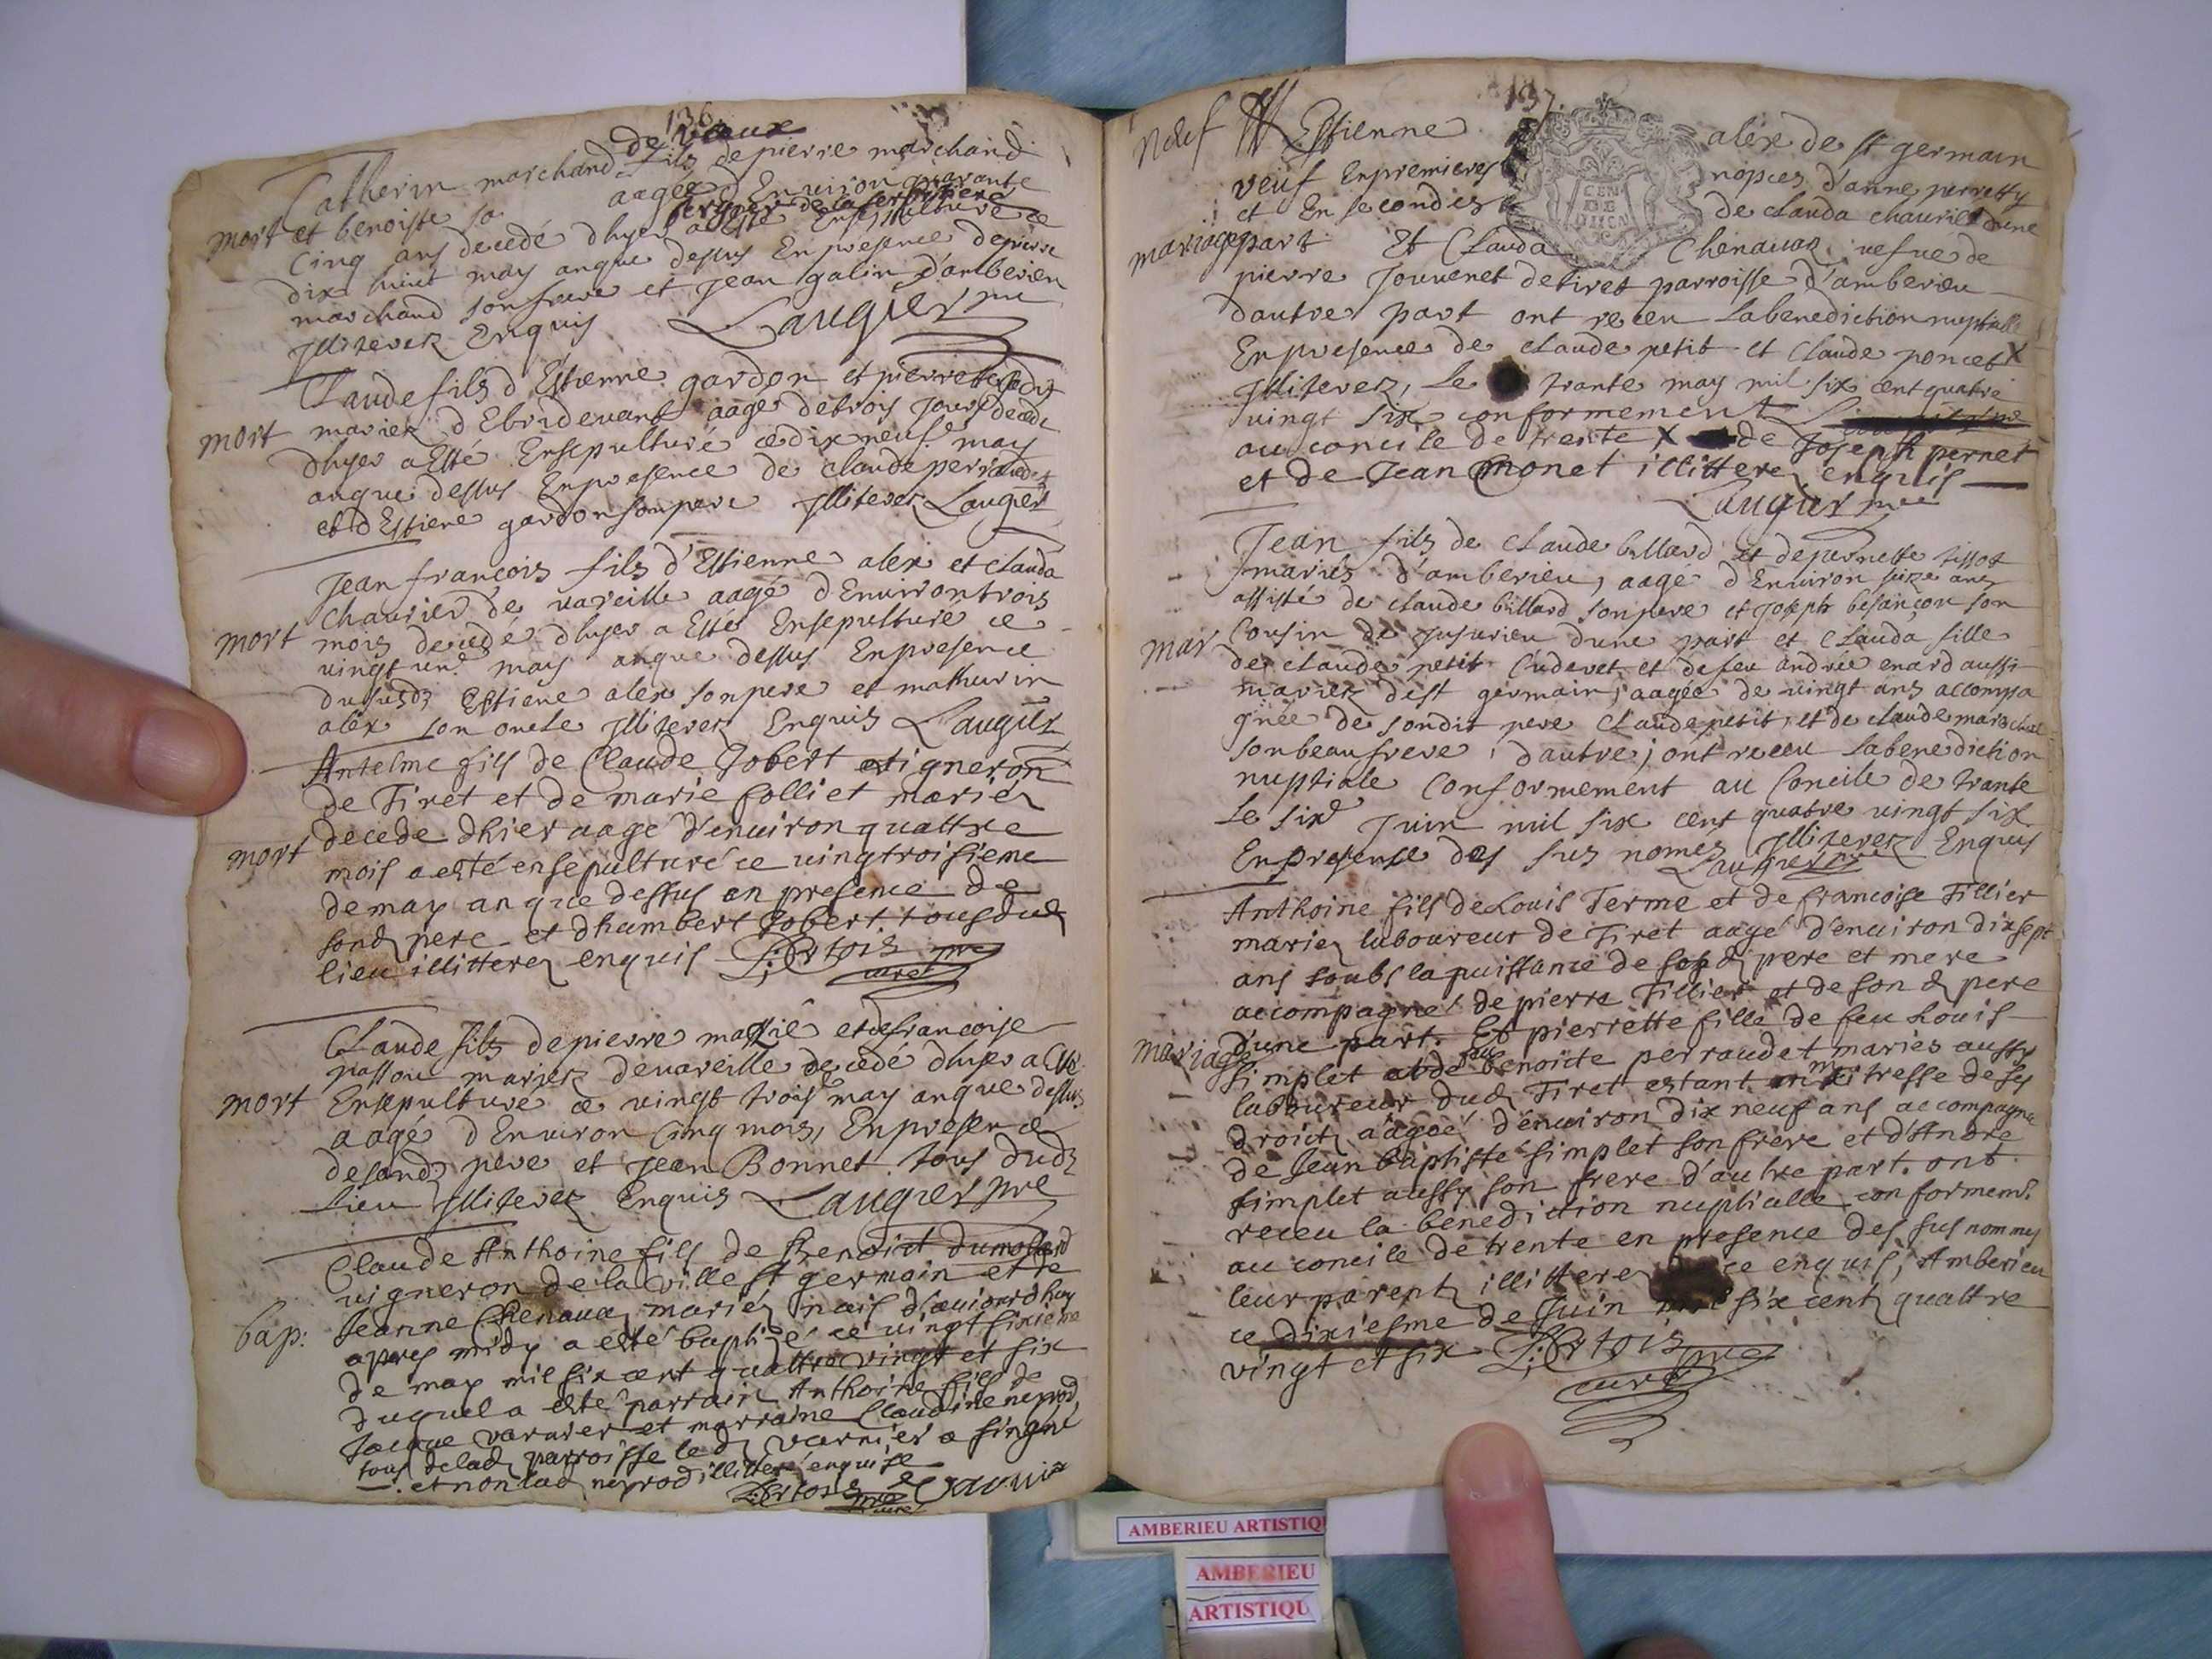 136
de vaux
Catherin marchand fils de pierre marchand
et benoiste aagée d'Environ quarante
mort
Cinq ans decedé dhyer a esté Ensepulturé ce
dix huict may anque dessus En presence de pierre
marchand son frere et Jean galin d'amberieu
Illiterez Enquis Laugier pre
Claude fils d'Estienne gardon et pierrette
mort
mariez d'Ebridevant aagé de trois Jours decedé
dhyer a Esté Ensepulturé ce dix neuf.e may
anque dessus En presence de claude perraudet
et d'Estiene gardon son pere Illiterez Laugier
Jean francois fils d'Estienne alex et Clauda
Chaurier de vareille aagé d'Environ trois
mort
mois decedé dhyer a Esté Ensepulturé ce
vingt un.e may anque dessus En presence
du susdz Estiene alex son pere et mathurin
alex son oncle Illiterez Enquis Laugier
Antelme fils de Claude Jobert vigneron
de Tiret et de marie folliet mariez
mort
decede dhier aagé d'environ quattre
mois a esté ensepulturé ce vingtroisieme
de may an que dessus en presence de
sondz pere et dhumbert Jobert tous dudz
lieu illitterez enquis L: Ertois pre
curé
Claude fils de pierre et de francoise
passou mariez de vareille decedé dhyer a Esté
mort
Ensepulturé ce vingt trois.e may anque dessus
aagé d'Environ Cinq mois, En presence
de sondz pere et Jean Bonnet tous dudz
Lieu Illiterez Enquis Laugier pre
Claude Anthoine fils de Benoict dumollard
vigneron de la ville st germain et de
bap:
Jeanne Chenavaz mariez nais d'auiourdhuy
apres midy a esté baptizé ce vingt sixieme
de may mil six cent quattre vingt et six
duquel a esté parrain Anthoine fils de
Jacque varnier et marraine Claudine neyrod
tous de ladz parroisse ledz varnier a singné
et non ladz neyrod illitteré enquise
L: Ertois pre curé Varnier
137
Neuf Estienne alex de st germain
veuf En premieres nopces d'anne perretty
et En secondes de clauda chaurier d'une
mariage
part Et Clauda Chenavaz vefve de
pierre Jouvenet de tiret parroisse d'amberieu
dautre part ont receu la benediction nuptialle
En presence de claude petit et Claude poncet X
Illiterez, Le trante may mil six cent quatre
vingt six conformement
au concile de trente X de Joseph pernet
et de Jean monet illitterez enquis
Laugier pre
Jean fils de claude billard et de pernette tissot
mariés d'amberieu, aagé d'Environ seize ans
assisté de claude billard son pere et Joseph besançon son
mar
Cousin de Jusurieu dune part et Clauda fille
de claude petit Cuderet et de feu andrée enard aussi
mariez de st germain, aagée de vingt ans accompa
gnée de sondit pere Claude petit, et de claude mareschal
son beau frere, dautre, ont receu la benediction
nuptiale Conformement au Concile de trante
Le six.e Juin mil six cent quatre vingt six
En presence des sus només Illiterez Enquis
Laugier pre
Anthoine fils de Louis Terme et de francoise Tillier
mariez laboureur de Tiret aagé d'environ dix sept
ans soubs la puissance de sesdz pere et mere
accompagné de pierre Tillier et de son dz pere
mariage
d'une part. Et pierrette fille de feu Louis
simplet et de feu benoitte perraudet mariés aussy
laboureur dudz Tiret estant maitresse de ses
droictz aagée d'environ dix neuf ans accompagnée
de Jean baptiste simplet son frere et d'Andre
simplet aussy son frere d'autre part. ont
receu la benediction nuptialle conformemt
au concile de trente en presence des sus nommés
leur parentz illitterez ce enquis, Amberieu
ce dixiesme de Juin mil six centz quattre
vingt et six L: Ertois pre
curé
AMBERIEU ARTISTIQU
AMBERIEU
ARTISTIQU